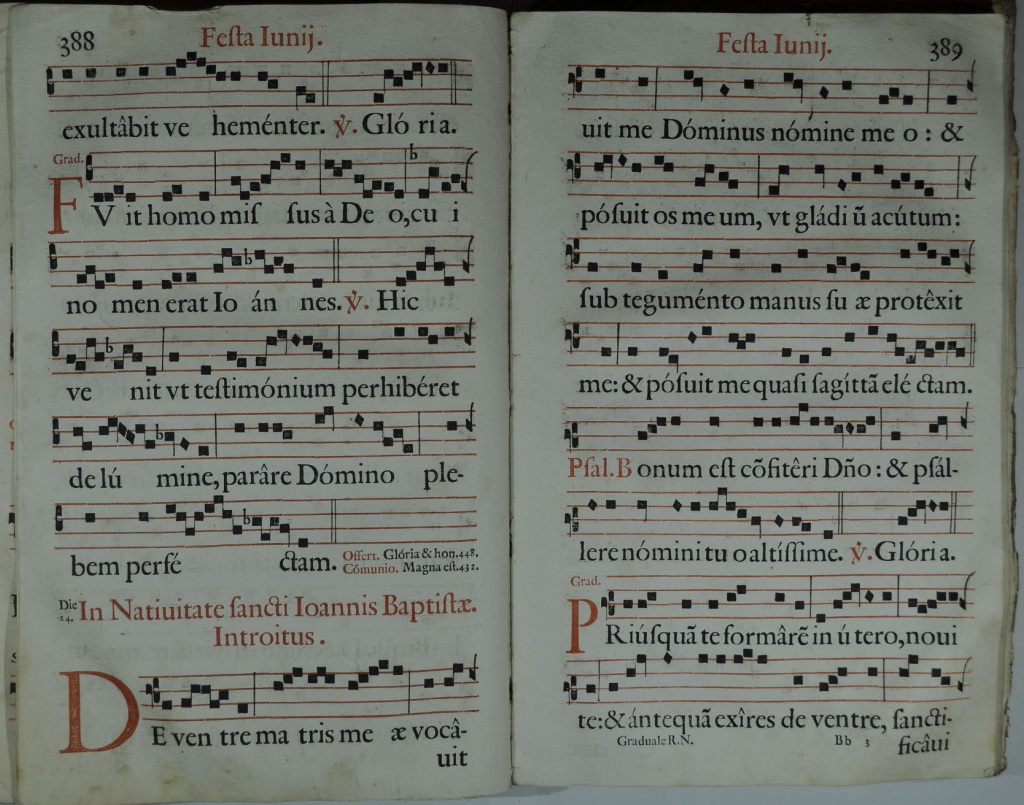 388
Festa Iunij.
exultâbit ve heménter. ℣. Gló ria.
Grad.
FVit homo mis sus à De o, cu i
no men erat Io án nes. ℣. Hic
ve nit vt testimónium perhibéret
de lú mine, parâre Dómino ple-
bem perfé ctam. Offert. Glória & hon. 448.
Cõmunio. Magna est. 432.
Die 24. In Natiuitate sancti Ioannis Baptistæ.
Introitus.
DE ven tre ma tris me æ vocâ-
uit
Festa Iunij.
389
uit me Dóminus nómine me o: &
pósuit os me um, vt gládi ũ acútum:
sub teguménto manus su æ protêxit
me: & pósuit me quasi sagíttã elé ctam.
Psal. B onum est cõfitêri Dño: & psál-
lere nómini tu o altíssime. ℣. Glóri a.
Grad.
PRiúsquã te formârẽ in ú tero, noui
te: & ántequã exîres de ventre, sancti-
Graduale R.N. Bb 3 ficâui